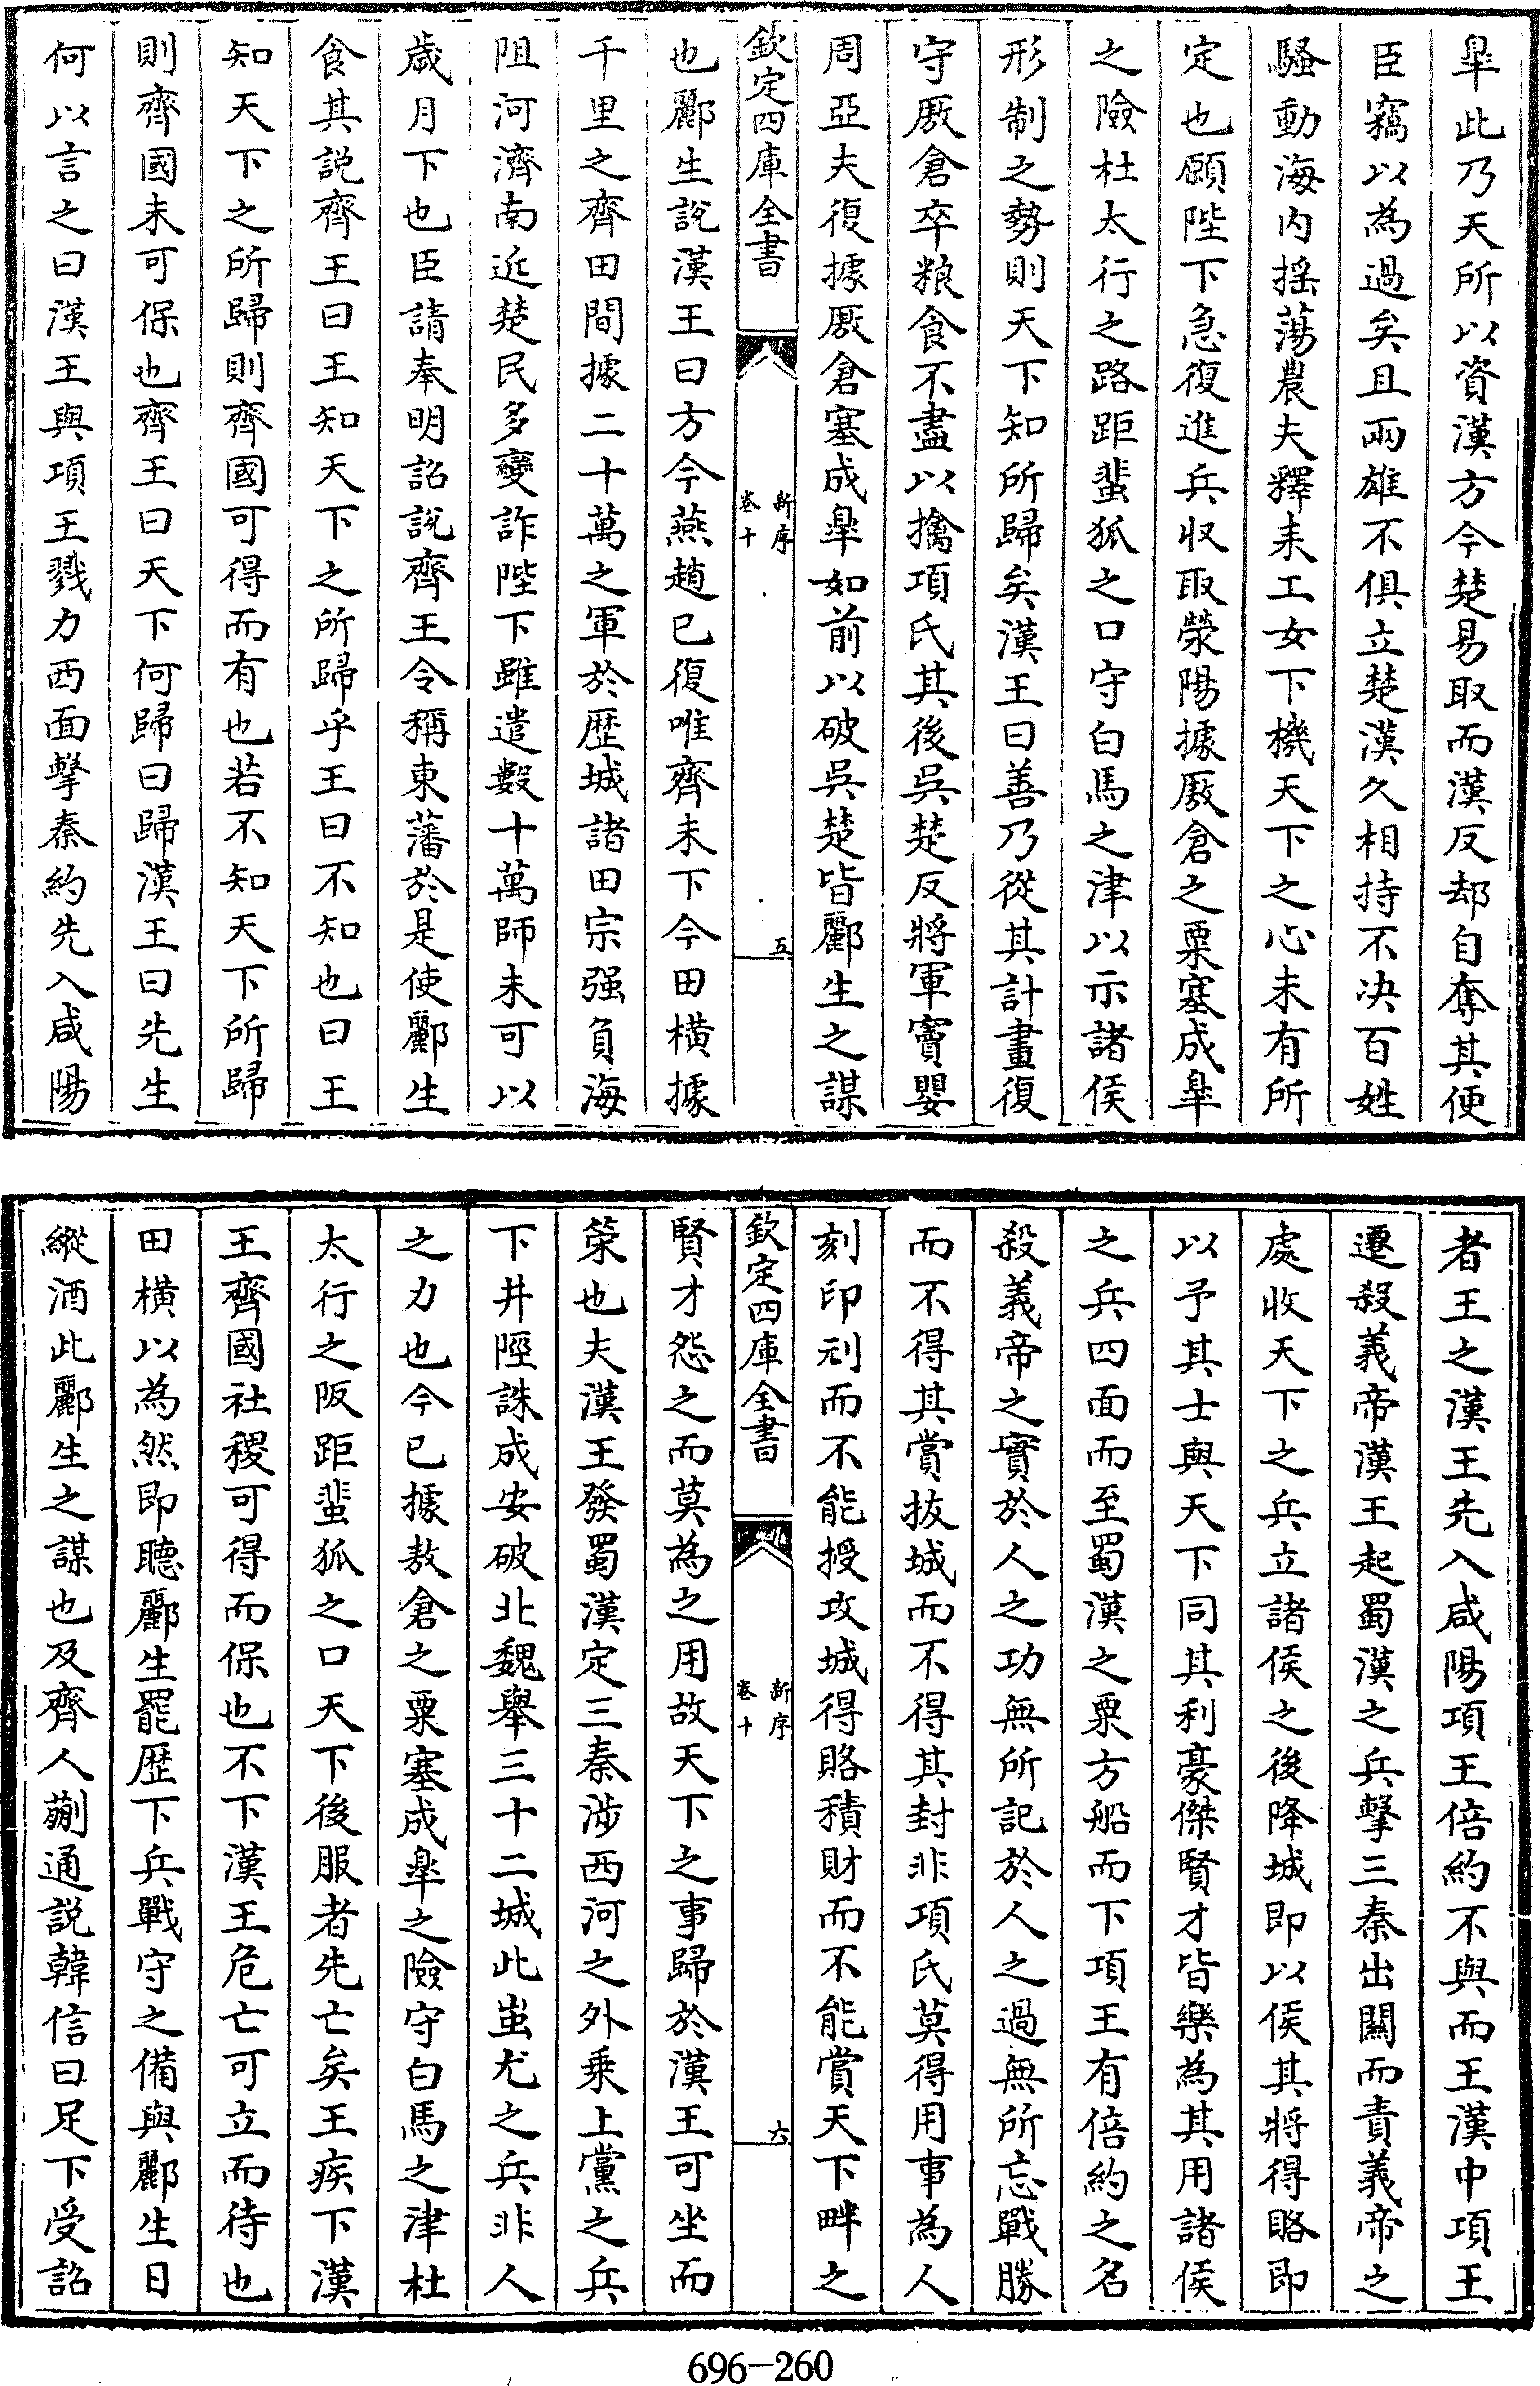 臯此乃天所以資漢方今楚易取而漢反却自奪其便
臣竊以為過矣且兩雄不俱立楚漢久相持不决百姓
騷動海内揺蕩農夫釋耒工女下機天下之心未有所
定也願陛下急復進兵収取滎陽據廒倉之粟塞成臯
之險杜太行之路距蜚狐之口守白馬之津以示諸侯
形制之勢則天下知所歸矣漢王曰善乃從其計畫復
守廒倉卒粮食不盡以擒項氏其後吳楚反將軍竇嬰
周亞夫復據廒倉塞成臯如前以破吳楚皆酈生之謀
欽定四庫全書
新序
卷十
五
也酈生說漢王曰方今燕趙已復唯齊未下今田横據
千里之齊田間據二十萬之軍於歴城諸田宗强負海
阻河濟南近楚民多變詐陛下雖遣數十萬師未可以
歲月下也臣請奉明詔說齊王令稱東藩於是使酈生
食其説齊王曰王知天下之所歸乎王曰不知也曰王
知天下之所歸則齊國可得而有也若不知天下所歸
則齊國未可保也齊王曰天下何歸曰歸漢王曰先生
何以言之曰漢王與項王戮力西面擊秦約先入咸陽
者王之漢王先入咸陽項王倍約不與而王漢中項王
遷殺義帝漢王起蜀漢之兵擊三秦出關而責義帝之
處收天下之兵立諸侯之後降城即以侯其將得賂即
以予其士與天下同其利豪傑賢才皆樂為其用諸侯
之兵四面而至蜀漢之粟方船而下項王有倍約之名
殺義帝之實於人之功無所記於人之過無所忘戰勝
而不得其賞拔城而不得其封非項氏莫得用事為人
刻印刓而不能授攻城得賂積財而不能賞天下畔之
欽定四庫全書
新序
卷十
六
賢才怨之而莫為之用故天下之事歸於漢王可坐而
策也夫漢王發蜀漢定三秦涉西河之外乗上黨之兵
下井陘誅成安破北魏舉三十二城此蚩尤之兵非人
之力也今已據敖倉之粟塞成臯之險守白馬之津杜
太行之阪距蜚狐之口天下後服者先亡矣王疾下漢
王齊國社稷可得而保也不下漢王危亡可立而待也
田横以為然即聽酈生罷歴下兵戰守之備與酈生日
縱酒此酈生之謀也及齊人蒯通説韓信曰足下受詔
696-260